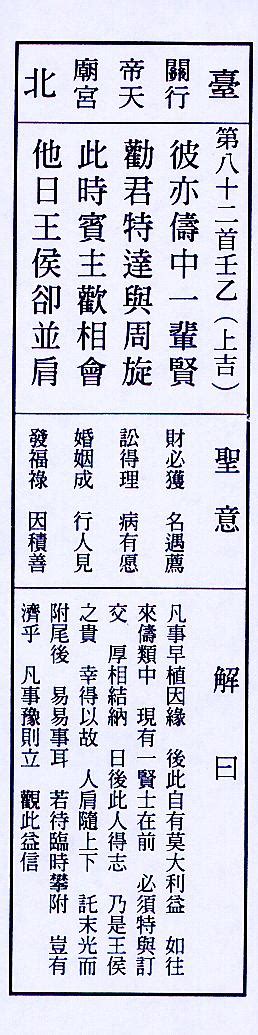 臺
關行
帝天
廟宮
北
第八十二首壬乙（上吉）
彼亦儔中一輩賢
勸君特達與周旋
此時賓主歡相會
他日王侯卻並肩
聖意
財必獲 名遇薦
訟得理 病有愿
婚姻成 行人見
發福祿 因積善
解曰
凡事早植因緣 後此自有莫大利益 如往
來儔類中 現有一賢士在前 必須特與訂
交 厚相結納 日後此人得志 乃是王侯
之貴 幸得以故 人肩隨上下 託末光而
附尾後 易易事耳 若待臨時攀附 豈有
濟乎 凡事豫則立 觀此益信